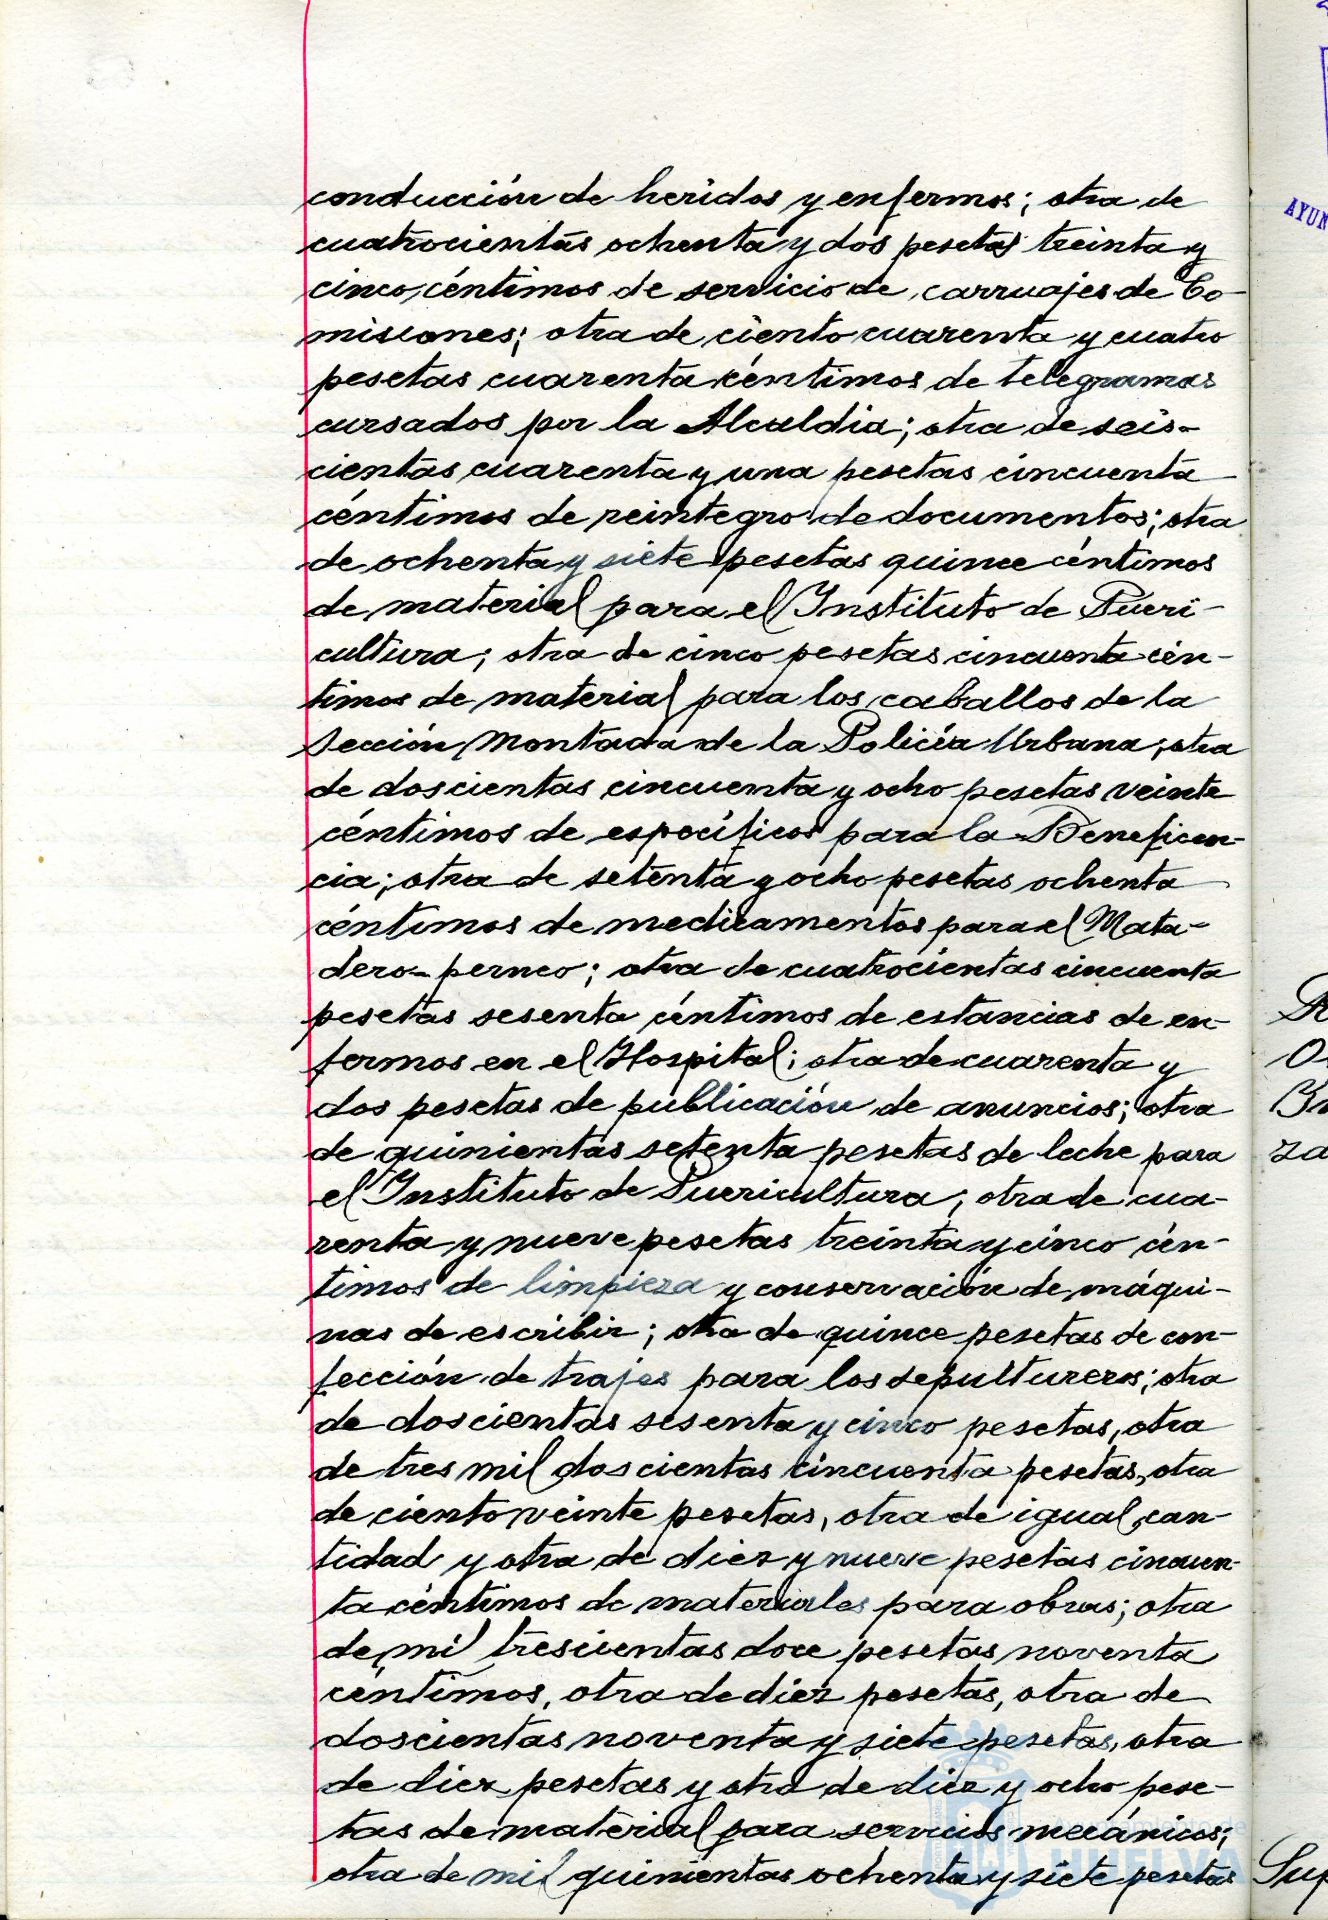 conducción de heridos y enfermos; otra de
cuatrocientas ochenta y dos pesetas treinta y
cinco céntimos de servicio de carruajes de Co-
misiones; otra de ciento cuarenta y cuatro
pesetas cuarenta céntimos de telegramas
cursados por la Alcaldia; otra de seis-
cientas cuarenta y una pesetas cincuenta
céntimos de reintegro de documentos; otra
de ochenta y siete pesetas quince céntimos
de material para el Instituto de Pueri-
cultura; otra de cinco pesetas cincuenta cén-
timos de material para los caballos de la
Sección Montada de la Policía Urbana; otra
de doscientas cincuenta y ocho pesetas veinte
céntimos de específicos para la Beneficen-
cia; otra de setenta y ocho pesetas ochenta
céntimos de medicamentos para el Mata-
dero perneo; otra de cuatrocientas cincuenta
pesetas sesenta céntimos de estancias de en-
fermos en el Hospital; otra de cuarenta y
dos pesetas de publicación de anuncios; otra
de quinientas setenta pesetas de leche para
el Instituto de Puericultura; otra de cua-
renta y nueve pesetas treinta y cinco cén-
timos de limpieza y conservación de máqui-
nas de escribir; otra de quince pesetas de con-
fección de trajes para los sepultureros; otra
de doscientas sesenta y cinco pesetas, otra
de tres mil doscientas cincuenta pesetas, otra
de ciento veinte pesetas, otra de igual can-
tidad y otra de diez y nueve pesetas cincuen-
ta céntimos de materiales para obras; otra
de mil trescientas doce pesetas noventa
céntimos, otra de diez pesetas, otra de
doscientas noventa y siete pesetas, otra
de diez pesetas y otra de diez y ocho pese-
tas de material para servicios mecánicos;
otra de mil quinientas ochenta y siete pesetas
HUELVA